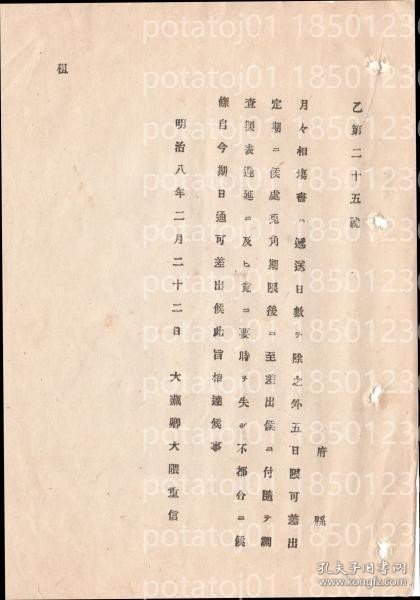 乙第二十五號
府縣
月々相塲書ハ遞送日數ヲ除之外五日限可差出
定期ニ候處兎角期限後ニ至差出候ニ付隨テ調
查表遲延ニ及ヒ竟ニ要時ヲ失シ不都合ニ候
條自今期日通可差出候此旨相達候事
明治八年二月二十二日 大藏卿大隈重信
租
potatoj01 1850123
孔夫子旧书网